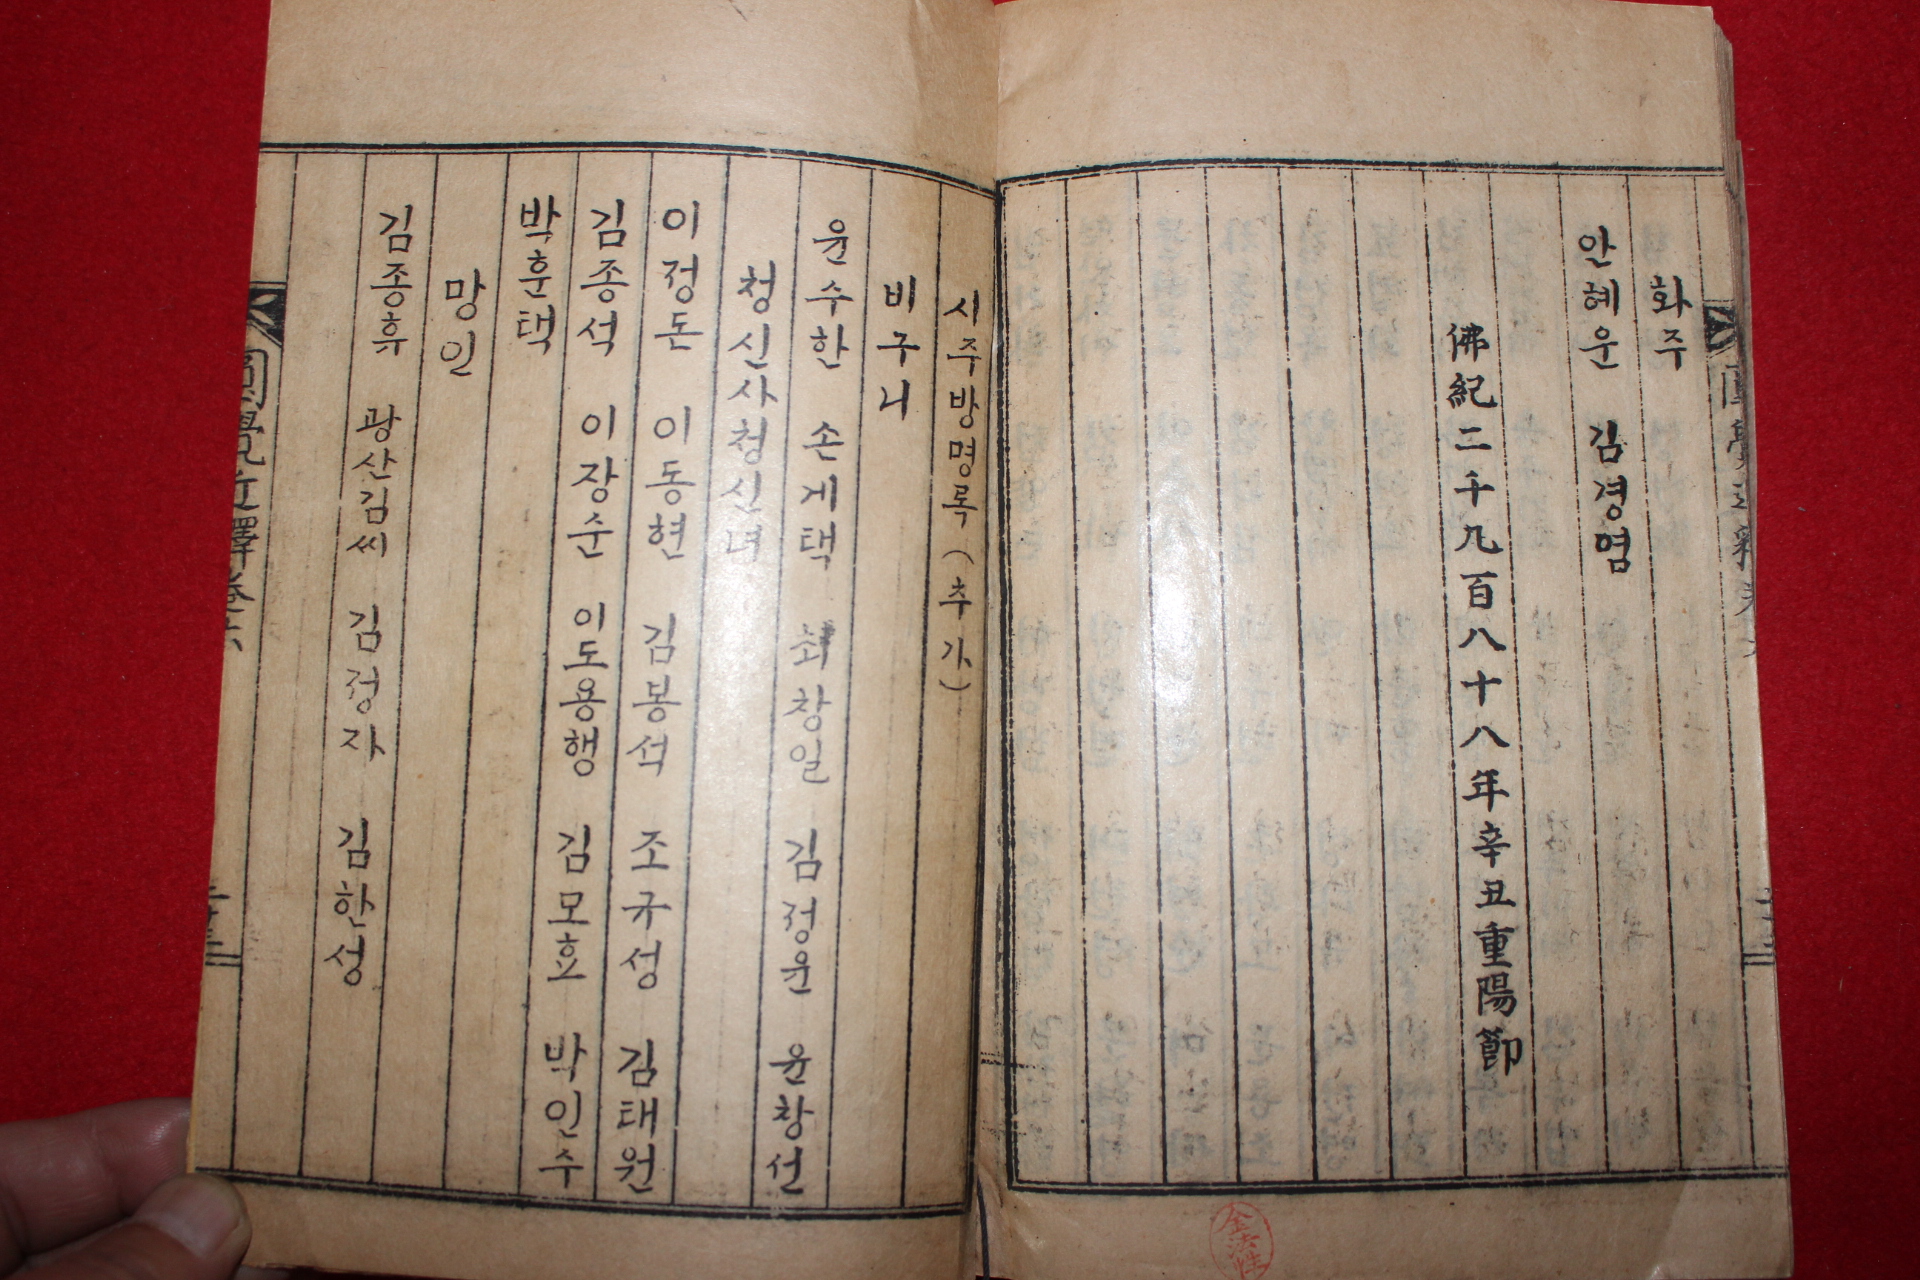 화주
안혜운 김경명
佛紀二千九百八十八年辛丑重陽節
시주방명록(추가)
비구니
윤수한 손계택 최창일 김정운 윤창선
청신사청신녀
이정돈 이동현 김봉석 조규성 김태원
김종석 이장순 이도용행 김모효 박인수
박훈택
망인
김종휴 광산김씨 김정자 김한성
圓覺
金法性